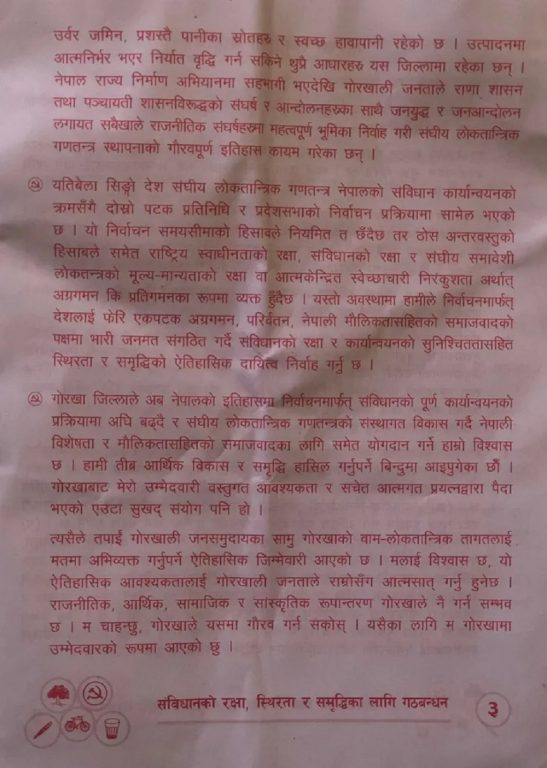 उर्वर जमिन, प्रशस्तै पानीका स्रोतहरु र स्वच्छ हावापानी रहेको छ । उत्पादनमा
आत्मनिर्भर भएर निर्यात वृद्धि गर्न सकिने थुप्रै आधारहरु यस जिल्लामा रहेका छन् ।
नेपाल राज्य निर्माण अभियानमा सहभागी भएदेखि गोरखाली जनताले राणा शासन
तथा पञ्चायती शासनविरुद्धको संघर्ष र आन्दोलनहरुका साथै जनयुद्ध र जनआन्दोलन
लगायत सबैखाले राजनीतिक संघर्षहरुमा महत्वपूर्ण भूमिका निर्वाह गरी संघीय लोकतान्त्रिक
गणतन्त्र स्थापनाको गौरवपूर्ण इतिहास कायम गरेका छन् ।
यतिबेला सिङ्गो देश संघीय लोकतान्त्रिक गणतन्त्र नेपालको संविधान कार्यान्वयनको
क्रमसँगै दोस्रो पटक प्रतिनिधि र प्रदेशसभाको निर्वाचन प्रक्रियामा सामेल भएको
छ । यो निर्वाचन समयसीमाको हिसाबले नियमित त छँदैछ तर ठोस अन्तरवस्तुको
हिसाबले समेत राष्ट्रिय स्वाधीनताको रक्षा, संविधानको रक्षा र संघीय समावेशी
लोकतन्त्रको मूल्य-मान्यताको रक्षा वा आत्मकेन्द्रित स्वेच्छाचारी निरंकुशता अर्थात्
अग्रगमन कि प्रतिगमनका रूपमा व्यक्त हुँदैछ । यस्तो अवस्थामा हामीले निर्वाचनमार्फत्
देशलाई फेरि एकपटक अग्रगमन, परिर्वतन, नेपाली मौलिकतासहितको समाजवादको
पक्षमा भारी जनमत संगठित गर्दै संविधानको रक्षा र कार्यान्वयनको सुनिश्चिततासहित
स्थिरता र समृद्धिको ऐतिहासिक दायित्व निर्वाह गर्नु छ ।
गोरखा जिल्लाले अब नेपालको इतिहासमा निर्वाचनमार्फत् संविधानको पूर्ण कार्यान्वयनको
प्रक्रियामा अघि बढ्दै र संघीय लोकतान्त्रिक गणतन्त्रको संस्थागत विकास गर्दै नेपाली
विशेषता र मौलिकतासहितको समाजवादका लागि समेत योगदान गर्ने हाम्रो विश्वास
छ । हामी तीब्र आर्थिक विकास र समृद्धि हासिल गर्नुपर्ने बिन्दुमा आइपुगेका छौं ।
गोरखाबाट मेरो उम्मेदवारी वस्तुगत आवश्यकता र सचेत आत्मगत प्रयत्नद्वारा पैदा
भएको एउटा सुखद् संयोग पनि हो ।
त्यसैले तपाईं गोरखाली जनसमुदायका सामु गोरखाको वाम-लोकतान्त्रिक तागतलाई
मतमा अभिव्यक्त गर्नुपर्ने ऐतिहासिक जिम्मेवारी आएको छ । मलाई विश्वास छ, यो
ऐतिहासिक आवश्यकतालाई गोरखाली जनताले राम्रोसँग आत्मसात् गर्नु हुनेछ ।
राजनीतिक, आर्थिक, सामाजिक र सांस्कृतिक रूपान्तरण गोरखाले नै गर्न सम्भव
छ । म चाहन्छु, गोरखाले यसमा गौरव गर्न सकोस् । यसैका लागि म गोरखामा
उम्मेदवारको रूपमा आएको छु ।
संविधानको रक्षा, स्थिरता र समृद्धिका लागि गठबन्धन
३